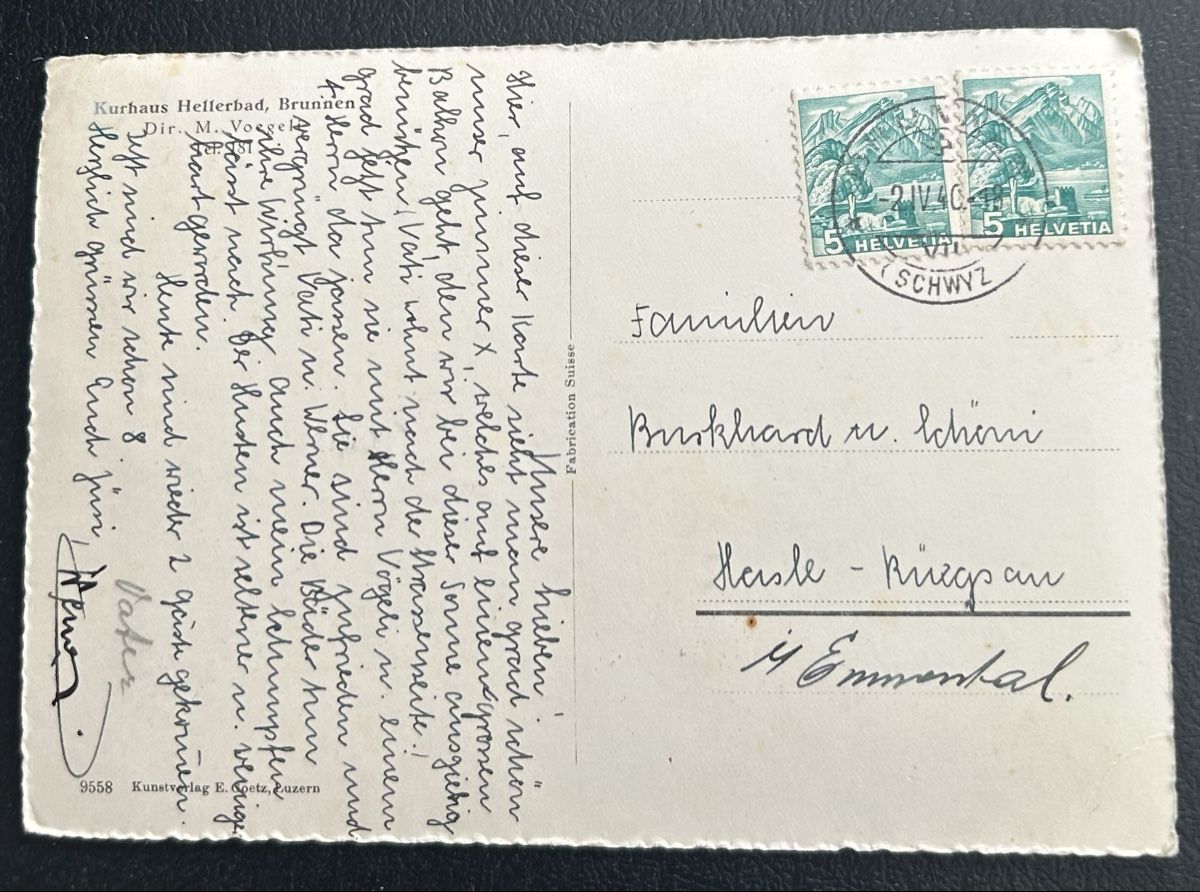 Kurhaus Hellerbad, Brunnen
Dir. M. Voegeli
Tel. 181
Unsere lieben!
Hier, auf dieser Karte sieht man grad schön
unser Zimmer X, welches auf einen grossen
Balkon geht, den wir bei dieser Sonne ausgiebig
benützen. (Vati wohnt nach der Strassenseite.)
grad jetzt tun sie mit Herrn Vögeli u. einem
4. Herrn da jassen. Sie sind zufrieden und
vergnügt Vati u. Werner. Die Bäder tun
ihre Wirkung, auch mein Schnupfen
lässt nach. Der Husten ist seltener u. weniger
hart geworden.
Heute sind wieder 2 Gäste gekommen.
Jetzt sind wir schon 8.
Herzlich grüssen Euch
Vater
Werner
9558 Kunstverlag E. Goetz, Luzern
Fabrication Suisse
5 HELVETIA
5 HELVETIA
-2.IV.40.-18
(SCHWYZ)
Familien
Burkhard u. Schöni
Hasle - Rüegsau
i/ Emmental.